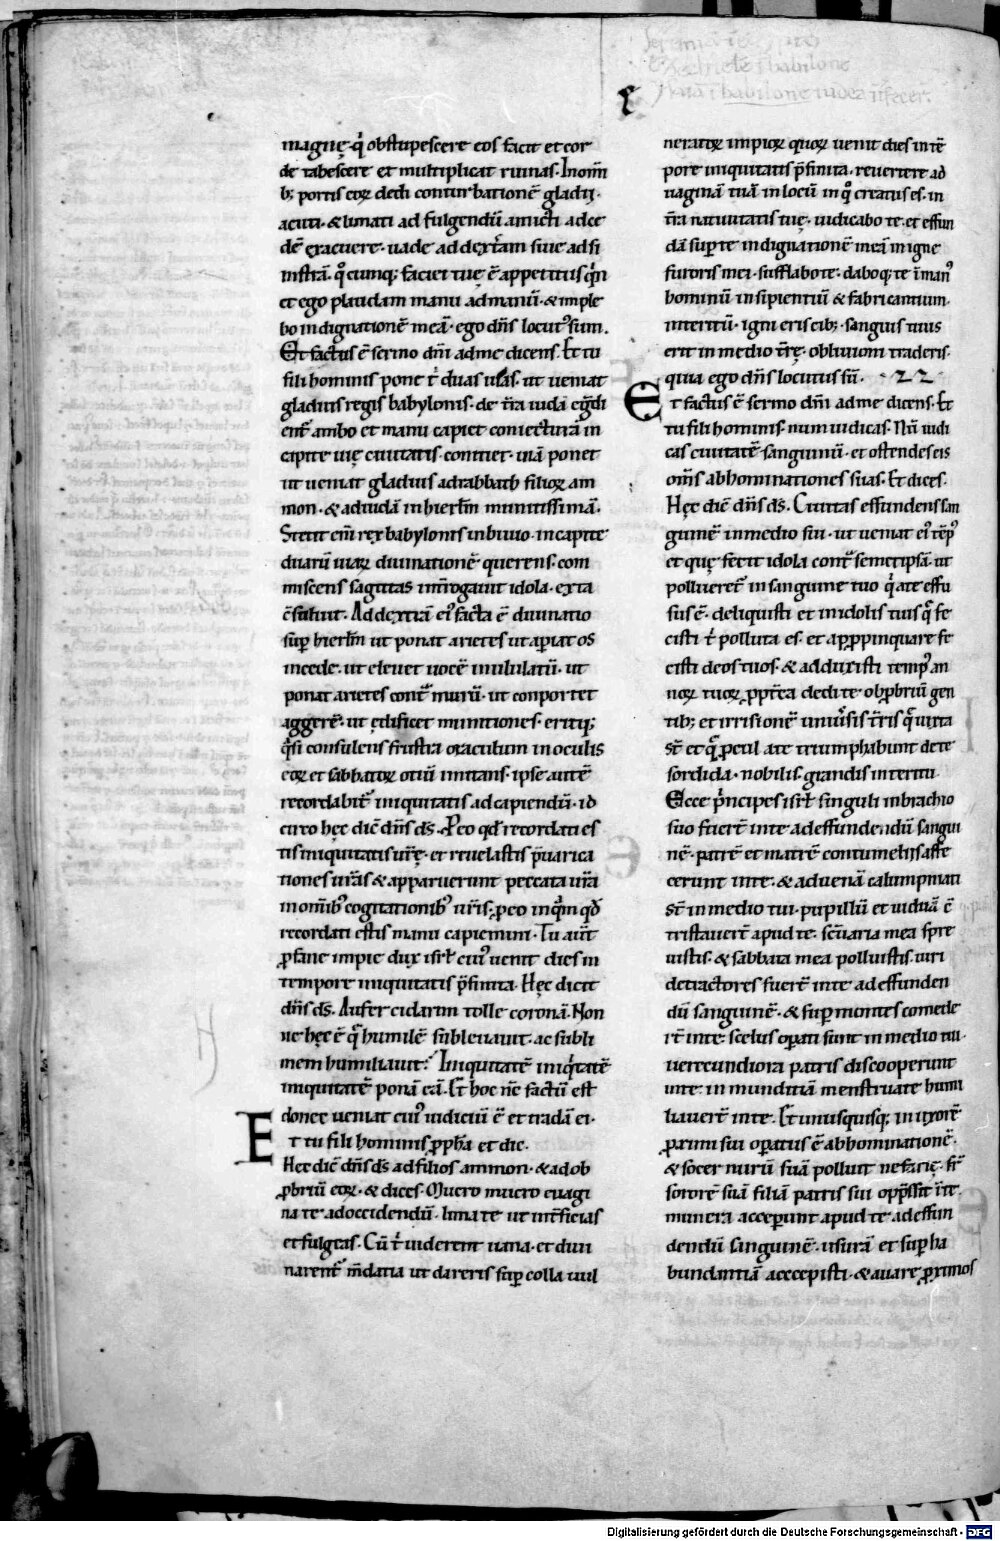 magnę· q̓ obstupescere eos facit et cor
de tabescere et multiplicat ruinas· In om̅i
b; portis eoꝝ dedi conturbatione̅ gladij·
acuti· & limati ad fulgendu̅ amicti ad ce
de̅ exacuere· uade ad dext̓am siue ad si
nistra̅· q̊cumq; faciei tuę e̅ appetitus q̓n
et ego plaudam manu ad manu̅· & imple
bo indignatione̅ mea̅· ego dn̅s locut᷒ sum.
Et factus e̅ sermo dn̅i ad me dicens· Et tu
fili hominis pone t̓ duas uias· ut ueniat
gladius regis babylonis· de tr̅a una eg̅di
ent᷑ ambo et manu capiet coniectura̅ in
capite uię ciuitatis coniciet· uia̅ ponet
ut ueniat gladius ad rabbath filioꝝ am
mon· & ad iuda̅ in hierl̅m munitissima̅·
Stetit eni̅ rex babylonis in biuio· in capite
duaru̅ uiaꝝ diuinatione̅ querens· com
miscens sagittas int̅rogauit idola· exta
c̅suluit· Ad dextra̅ ei᷒ facta e̅ diuinatio
sup̲ hierl̅m ut ponat arietes ut ap̲iat os
in cede· ut eleuet uoce̅ in ululatu̅· ut
ponat arietes cont᷑ muru̅· ut conportet
aggere̅· ut ędificet munitiones· eritq;
q̓si consulens frustra oraculum in oculis
eoꝝ et sabbatoꝝ otiu̅ imitans· ipse aute̅
recordabit᷑ iniquitatis ad capiendu̅· id
circo hęc dic̅ dn̅s ds̅· P̲ eo qd̅ recordati es
tis iniquitatis ur̅ę· et reuelastis p̅uarica
tiones ur̅as & apparuerunt peccata ur̅a
in om̅ib᷒ cogitationib᷒ ur̅is· p̲ eo inq̅m qd̅
recordati estis manu capiemini· Tu aut̅
p̲fane impie dux isrl̅ cui᷒ uenit dies in
tempore iniquitatis p̅finita· Hęc dicit
dn̅s ds̅· Aufer cidarim tolle corona̅· Non
ne hęc e̅ q̅ humile̅ subleuauit· ac subli
mem humiliauit? Iniquitate̅ iniq̓tate̅
iniquitate̅ pona̅ ea̅· Et hoc n̅c factu̅ est
donec ueniat cui᷒ iudiciu̅ e̅ et trada̅ ei·
Et tu fili hominis p̲ph̅a et dic·
Hęc dic̅ dn̅s ds̅ ad filios ammon· & ad ob
p̲briu̅ eoꝝ· & dices· Mucro mucro euagi
na te ad occidendu̅· lima te ut int̅ficias
et fulgeas· Cu̅ t̓ uiderent uana· et diui
narent᷑ m̅datia ut dareris sup̲ colla uul
neratoꝝ impioꝝ quoꝝ uenit dies in te̅
pore iniquitatis p̅finita· reuertere ad
uagina̅ tua̅ in locu̅ in q̊ creatus es· in
tr̅a natiuitatis tuę· iudicabo te· et effun
da̅ sup̲ te indignatione̅ mea̅ in igne
furoris mei· sufflabo te· daboq; te i̅ man᷒
hominu̅ insipientiu̅ & fabricantium
interitu̅· igni eris cib᷒· sanguis tuus
erit in medio tr̅ę· obliuioni traderis·
quia ego dn̅s locutus su̅· · 22 ·
Et factus e̅ sermo dn̅i ad me dicens· Et
tu fili hominis· num iudicas· Nu̅ iudi
cas ciuitate̅ sanguinu̅· et ostendes eis
om̅s abhominationes suas· Et dices·
Hęc dic̅ dn̅s ds̅· Ciuitas effundens san
guine̅ in medio sui· ut ueniat ei᷒ te̅p᷒
et quę fecit idola cont᷑ semetipsa̅· ut
pollueret᷑ in sanguine tuo q̓ a te effu
sus e̅· deliquisti et in idolis tuis q̅ fe
cisti t̓ polluta es· et app̲pinquare fe
cisti dies tuos· & adduxisti temp᷒ an
noꝝ tuoꝝ p̲pt̅ea dedi te obp̲briu̅ gen
tib; et irrisione̅ uniu̅sis tr̅is q̅ iuxta
st̅ et q̅ p̲cul a te triumphabunt de te
sordida· nobilis· grandis interitu
Ecce p̓ncipes isrl̅ singuli in brachio
suo fuer̅ in te ad effundendu̅ sangui
ne̅· patre̅ et matre̅ contumeliis affe
cerunt in te· & aduena̅ calumpniati
st̅ in medio tui· pupillu̅ et uidua̅ c̅
tristauer̅ apud te· sc̅uaria mea spre
uistis· & sabbata mea polluistis· uiri
detractores fuer̅ in te ad effunden
du̅ sanguine̅· & sup̲ montes comede
rt̅ in te· scelus op̲ati sunt in medio tui·
uerecundiora patris discooperunt
in te· inmunditia̅ menstruate humi
liauer̅ in te· Et unusquisq; in uxore̅
p̲ximi sui op̲atus e̅ abhominatione̅·
& socer nuru̅ sua̅ polluit nefarię· fr̅
sorore̅ sua̅ filia̅ patris sui opp̅ssit i̅ te·
munera acceperunt apud te ad effun
dendu̅ sanguine̅· usura̅ et sup̲ha
bundantia̅ accepisti· & auare p̲ximos
Digitalisierung gefördert durch die Deutsche Forschungsgemeinschaft - DFG